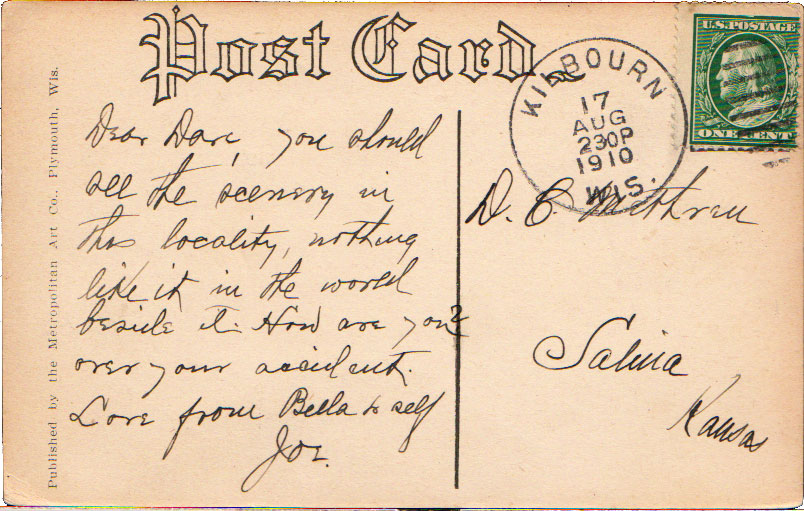 Post Card
U.S. POSTAGE
ONE CENT
KILBOURN
17
AUG
230P
1910
WIS.
Published by the Metropolitan Art Co., Plymouth, Wis.
Dear Dave, you should
see the scenery in
this locality, nothing
like it in the world
beside it. How are you?
over your accident.
Love from Bella & self
Joe.
D. C.
Salina
Kansas